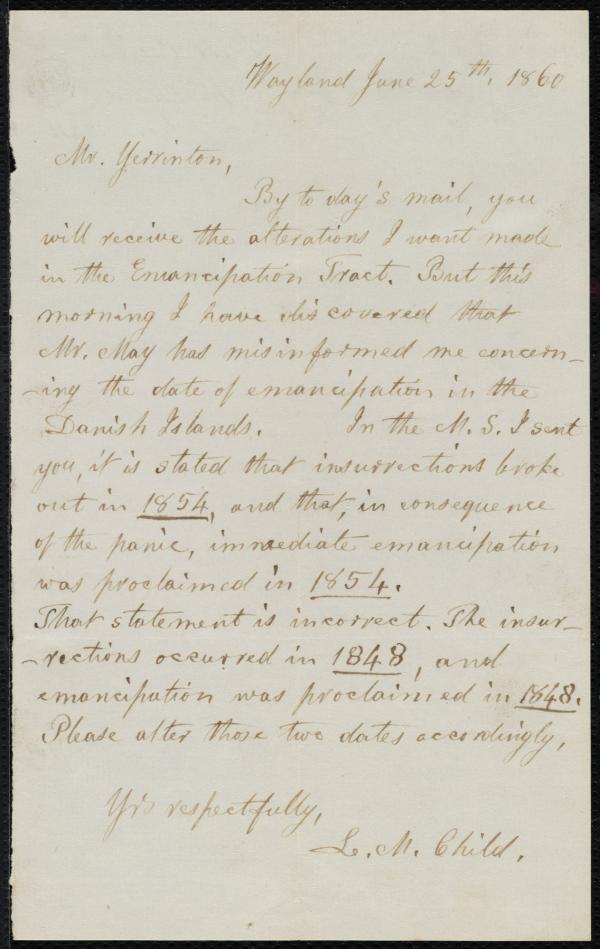 Wayland June 25th, 1860
Mr. Yerrinton,
By to day's mail, you
will receive the alterations I want made
in the Emancipation Tract. But this
morning I have discovered that
Mr. May has misinformed me concern-
-ing the date of emancipation in the
Danish Islands. In the M. S. I sent
you, it is stated that insurrections broke
out in 1854, and that, in consequence
of the panic, immediate emancipation
was proclaimed in 1854.
That statement is incorrect. The insur-
-rections occurred in 1848, and
emancipation was proclaimed in 1848.
Please alter those two dates accordingly,
Yrs respectfully,
L. M. Child.